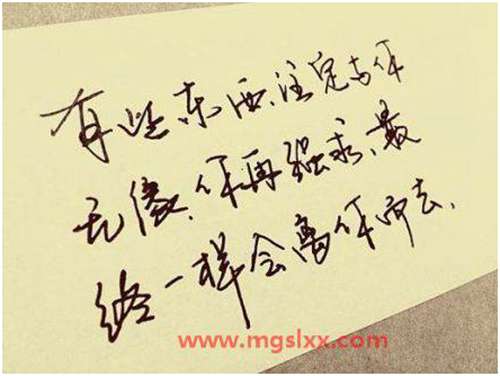 有些东西,注定与你
无缘,你再强求,最
终一样会离你而去,
www.mgslxx.com